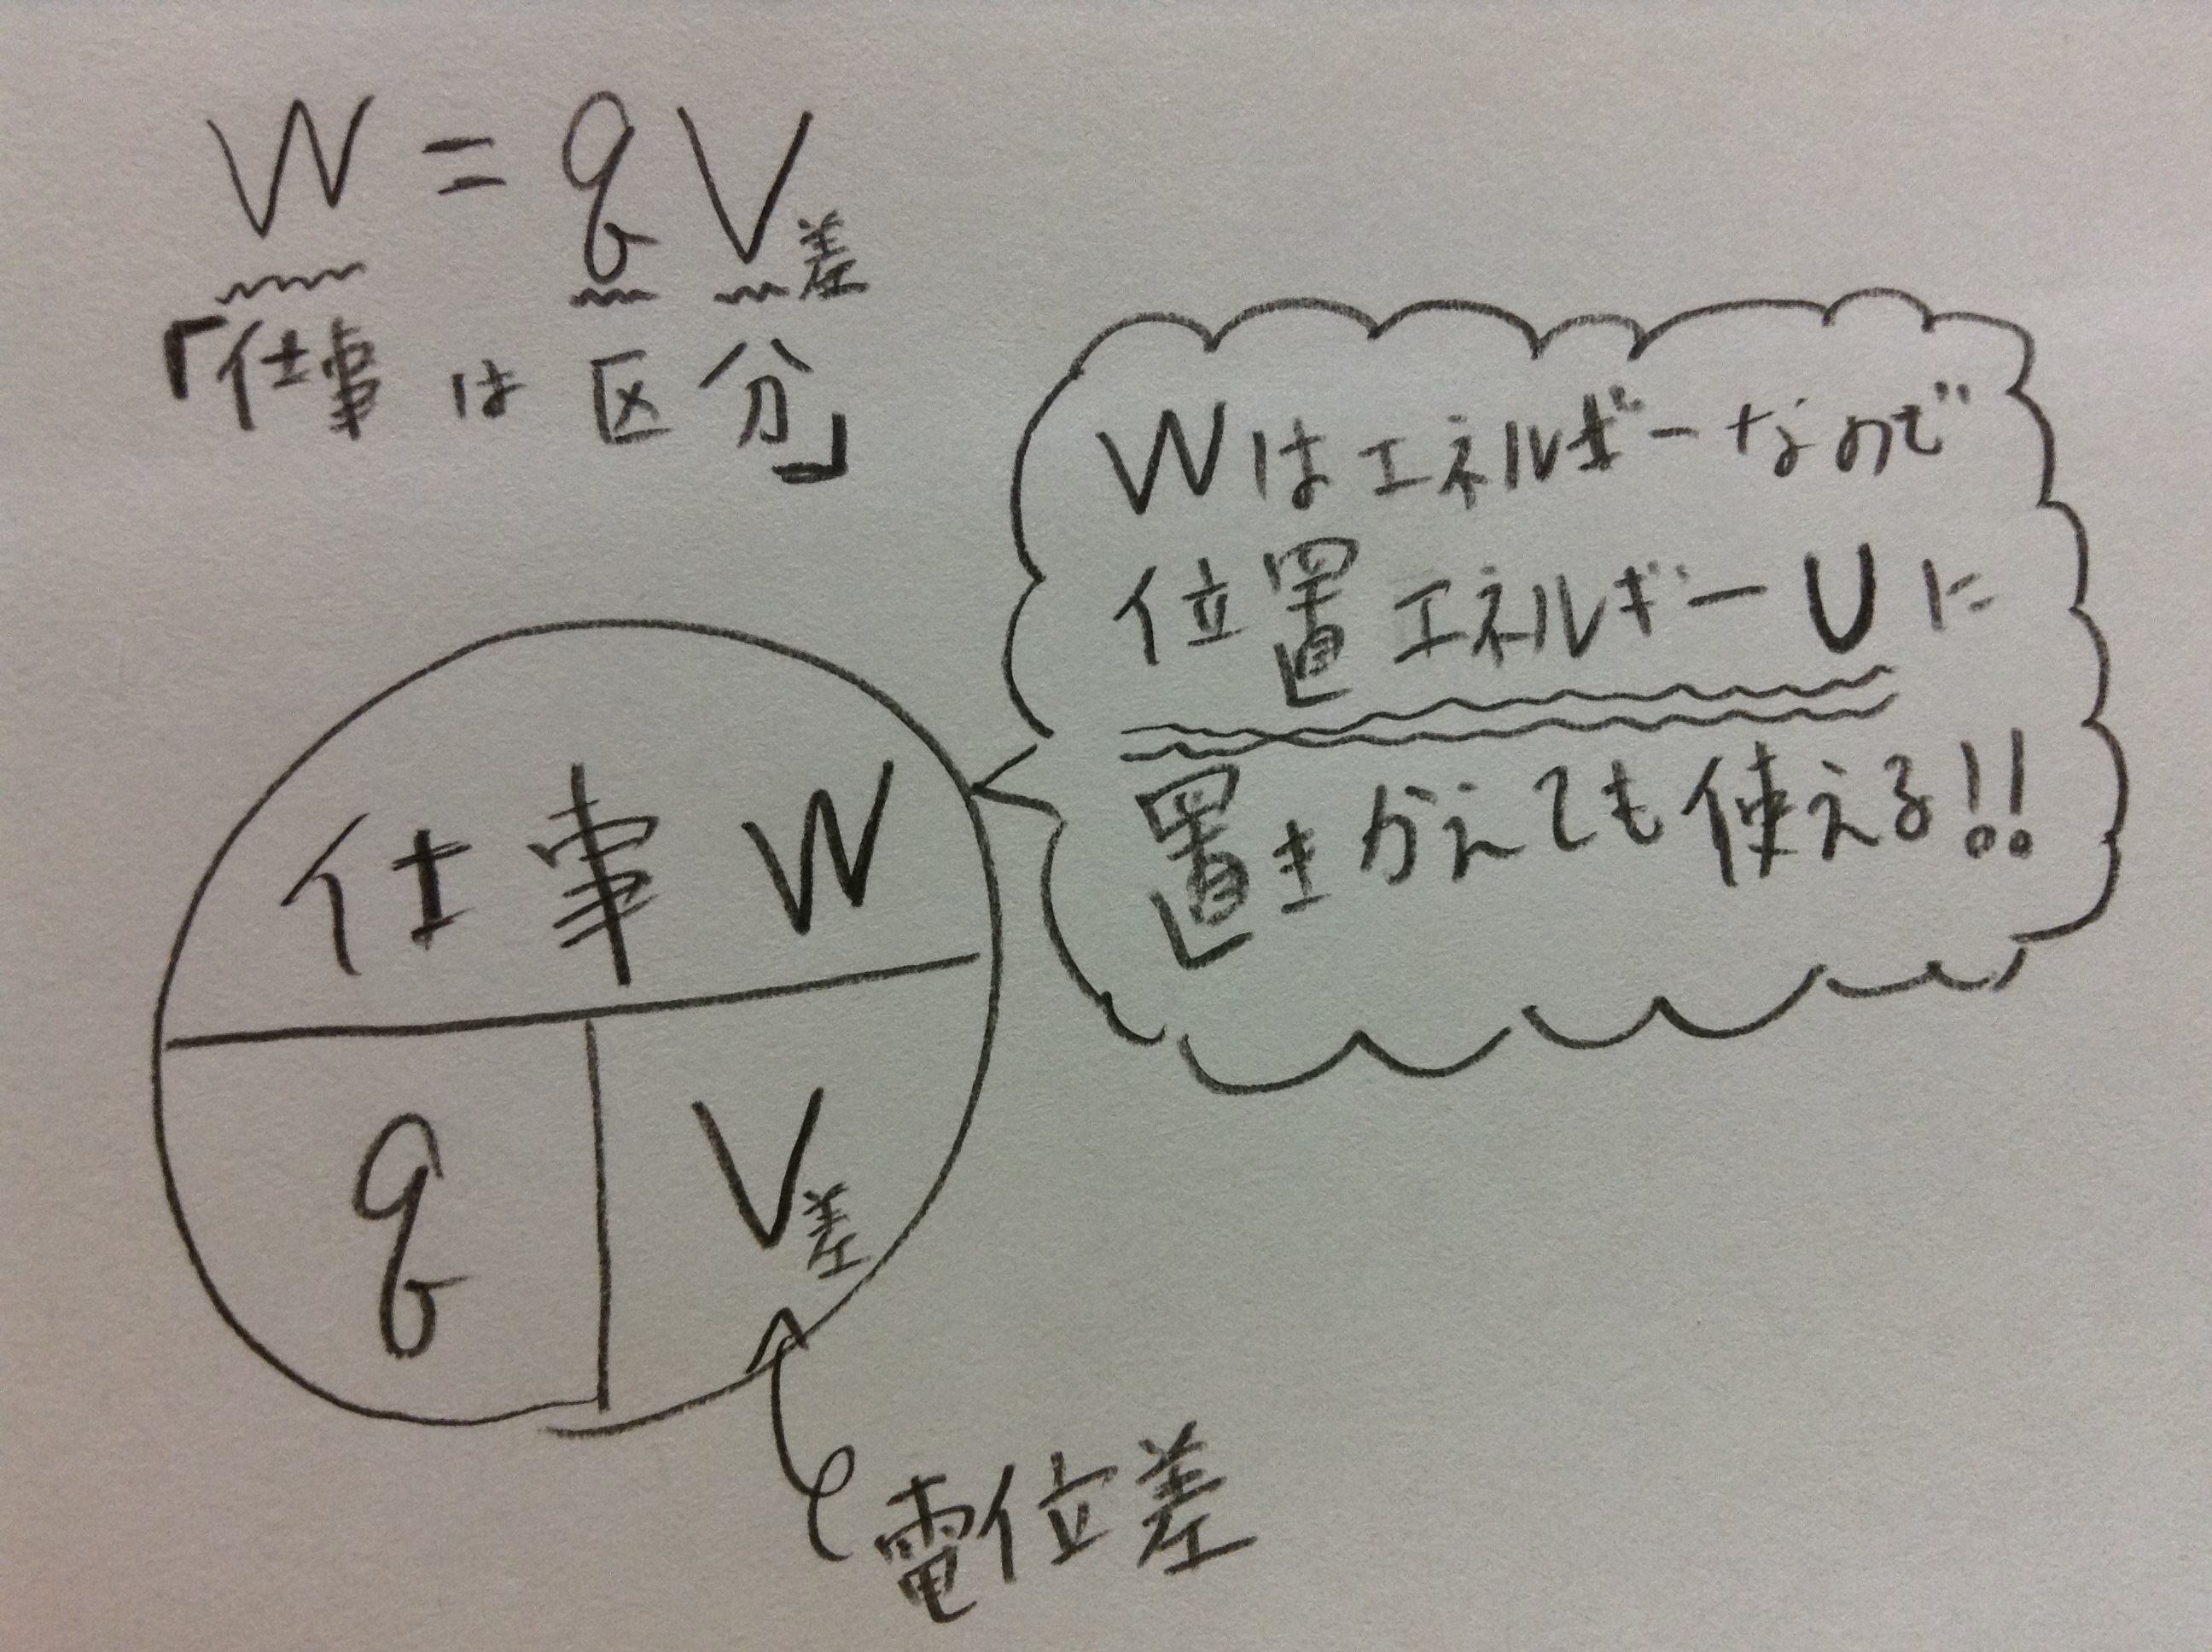 W = qV差
「仕事は区分」
Wはエネルギーなので
位置エネルギーUに
置きかえても使える!!
仕事 W
q V差
電位差